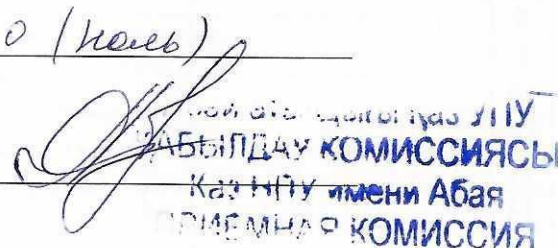 0 (ноль)
ҚАБЫЛДАУ КОМИССИЯСЫ
КазНПУ имени Абая
ПРИЕМНАЯ КОМИССИЯ